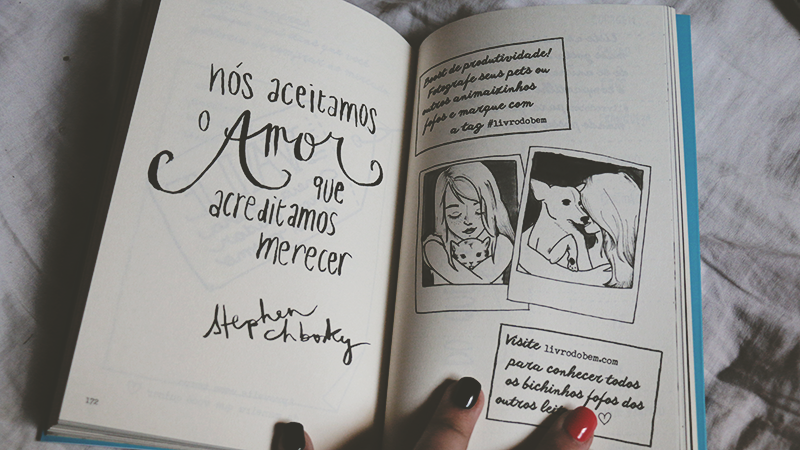 nós aceitamos
o Amor
que
acreditamos
merecer
Stephen
Chbosky
172
Boost de produtividade!
Fotografe seus pets ou
outros animaizinhos
fofos e marque com
a tag #livrodobem
Visite livrodobem.com
para conhecer todos
os bichinhos fofos dos
outros